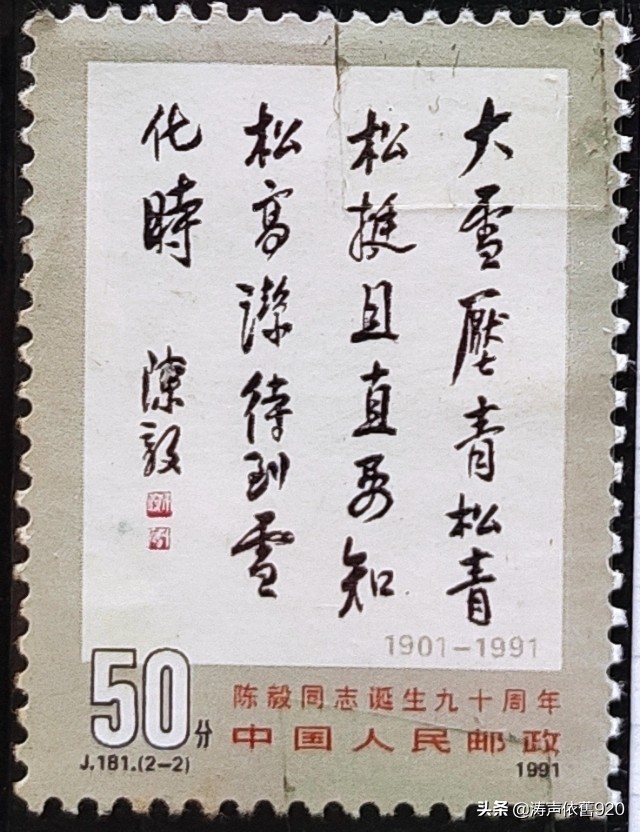 大雪壓青松青
松挺且直要知
松高潔待到雪
化時
陳毅
1901-1991
50分
陈毅同志诞生九十周年
中国人民邮政
J.181.(2-2)
1991
头条 @涛声依舊920